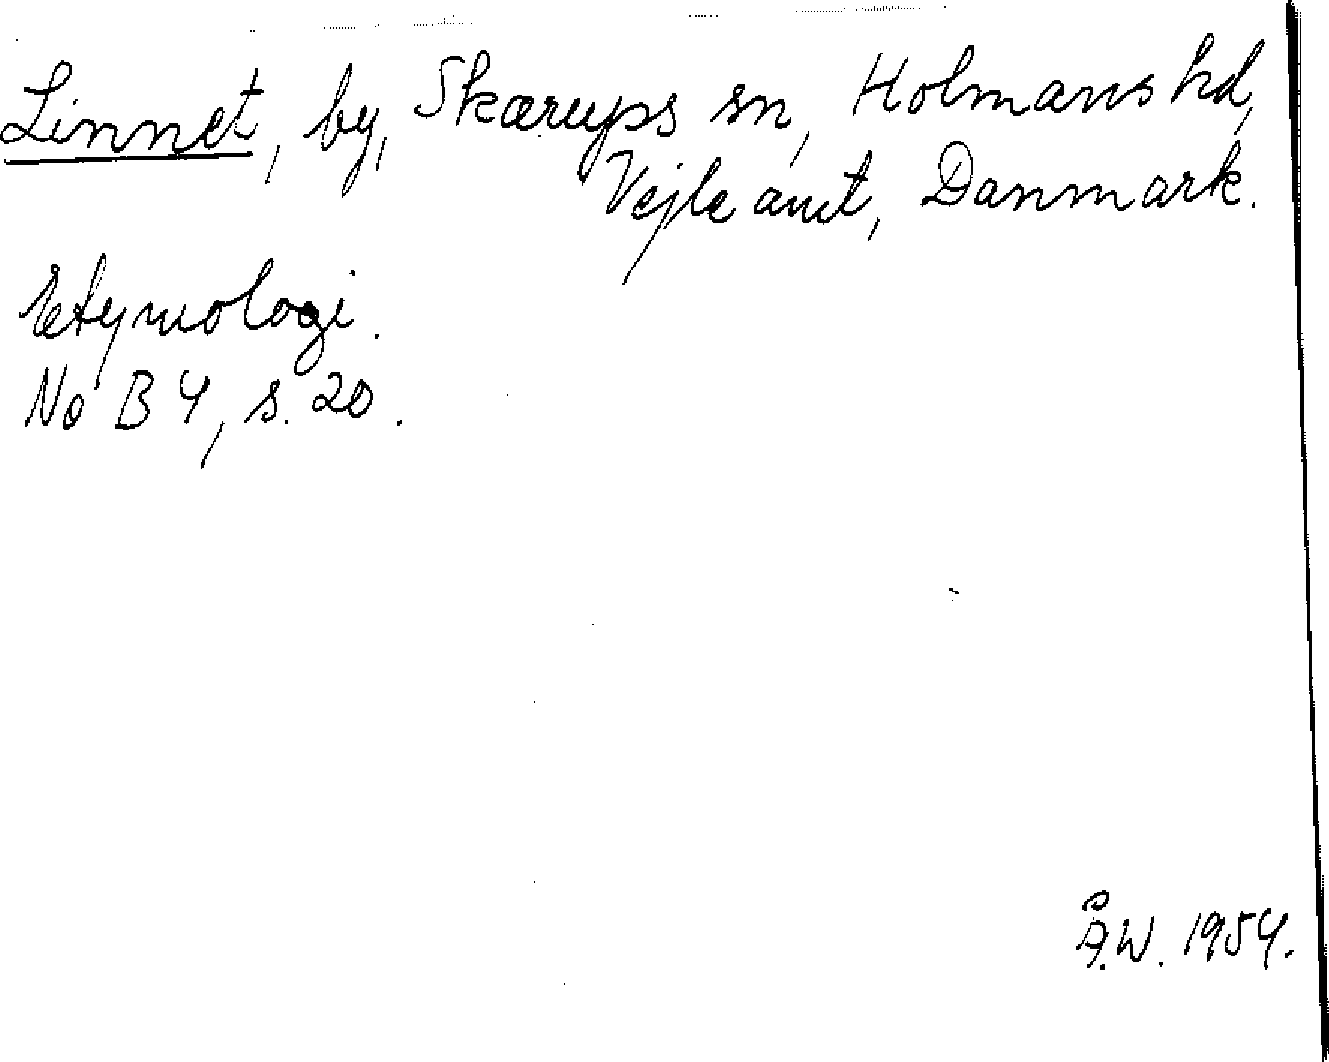 Linnet, by, Skærups sn, Holmans hd,
Vejle amt, Danmark.
Etymologi.
No B 4, s. 20.
Å.W. 1954.